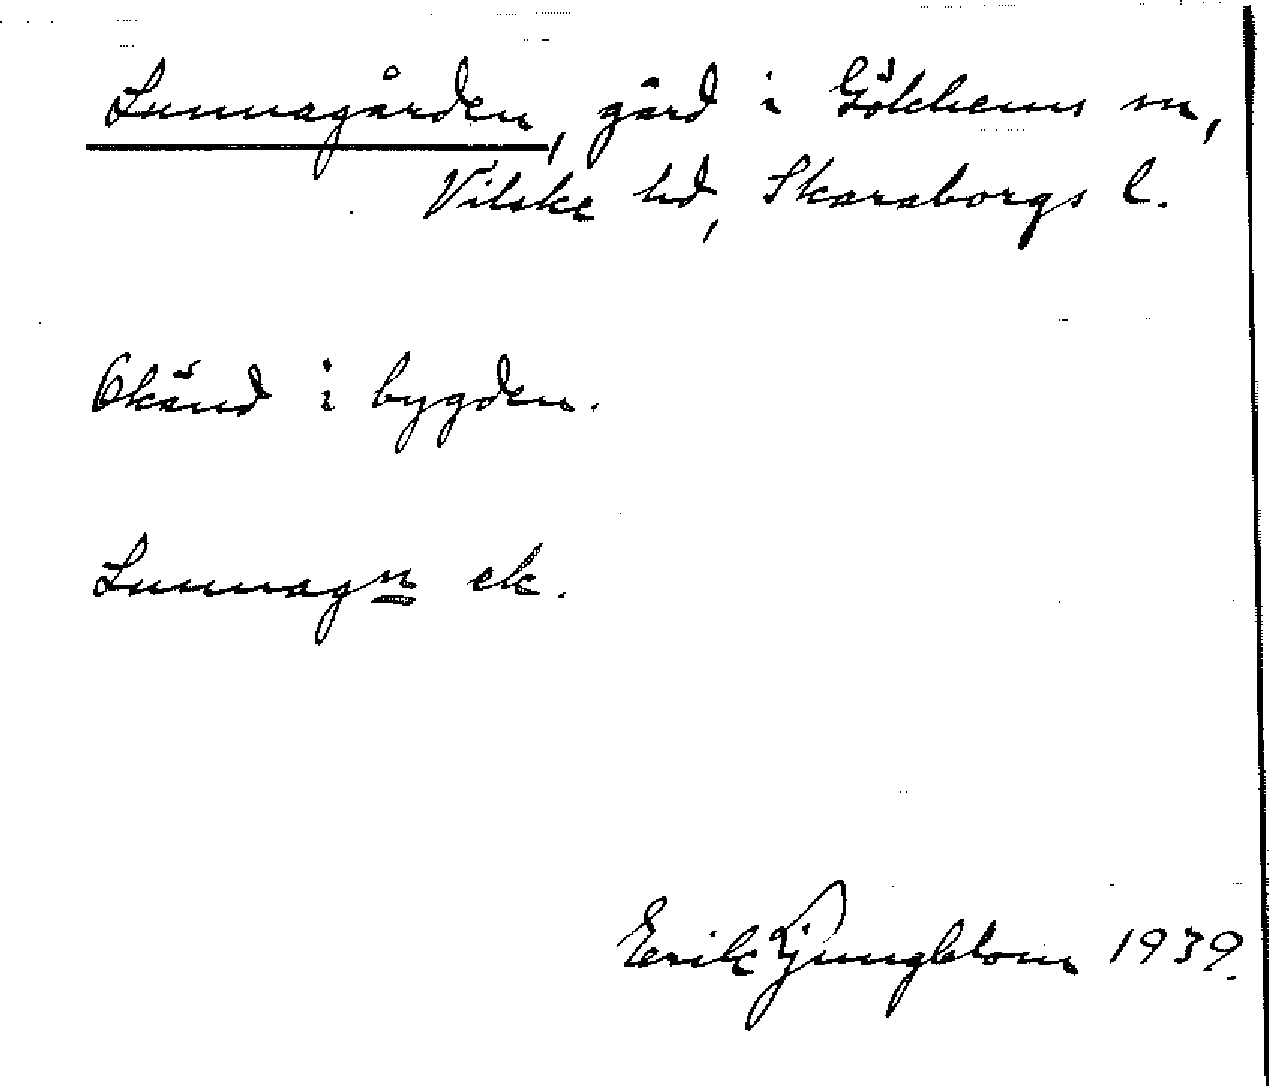 Lunnagården, gård i Gökhems sn,
Vilske hd, Skaraborgs l.
Okänd i bygden.
Lunnagn ek.
Erik Ljungblom 1939.